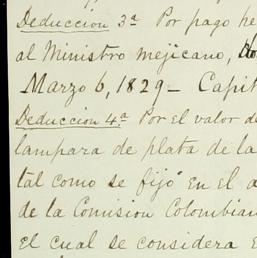 Deduccion 3ª Por pago he
al Ministro mejicano,
Marzo 6, 1829 - Capit
Deduccion 4ª Por el valor de
lampara de plata de la
tal como se fijó en el a
de la Comision Colombian
el cual se considera